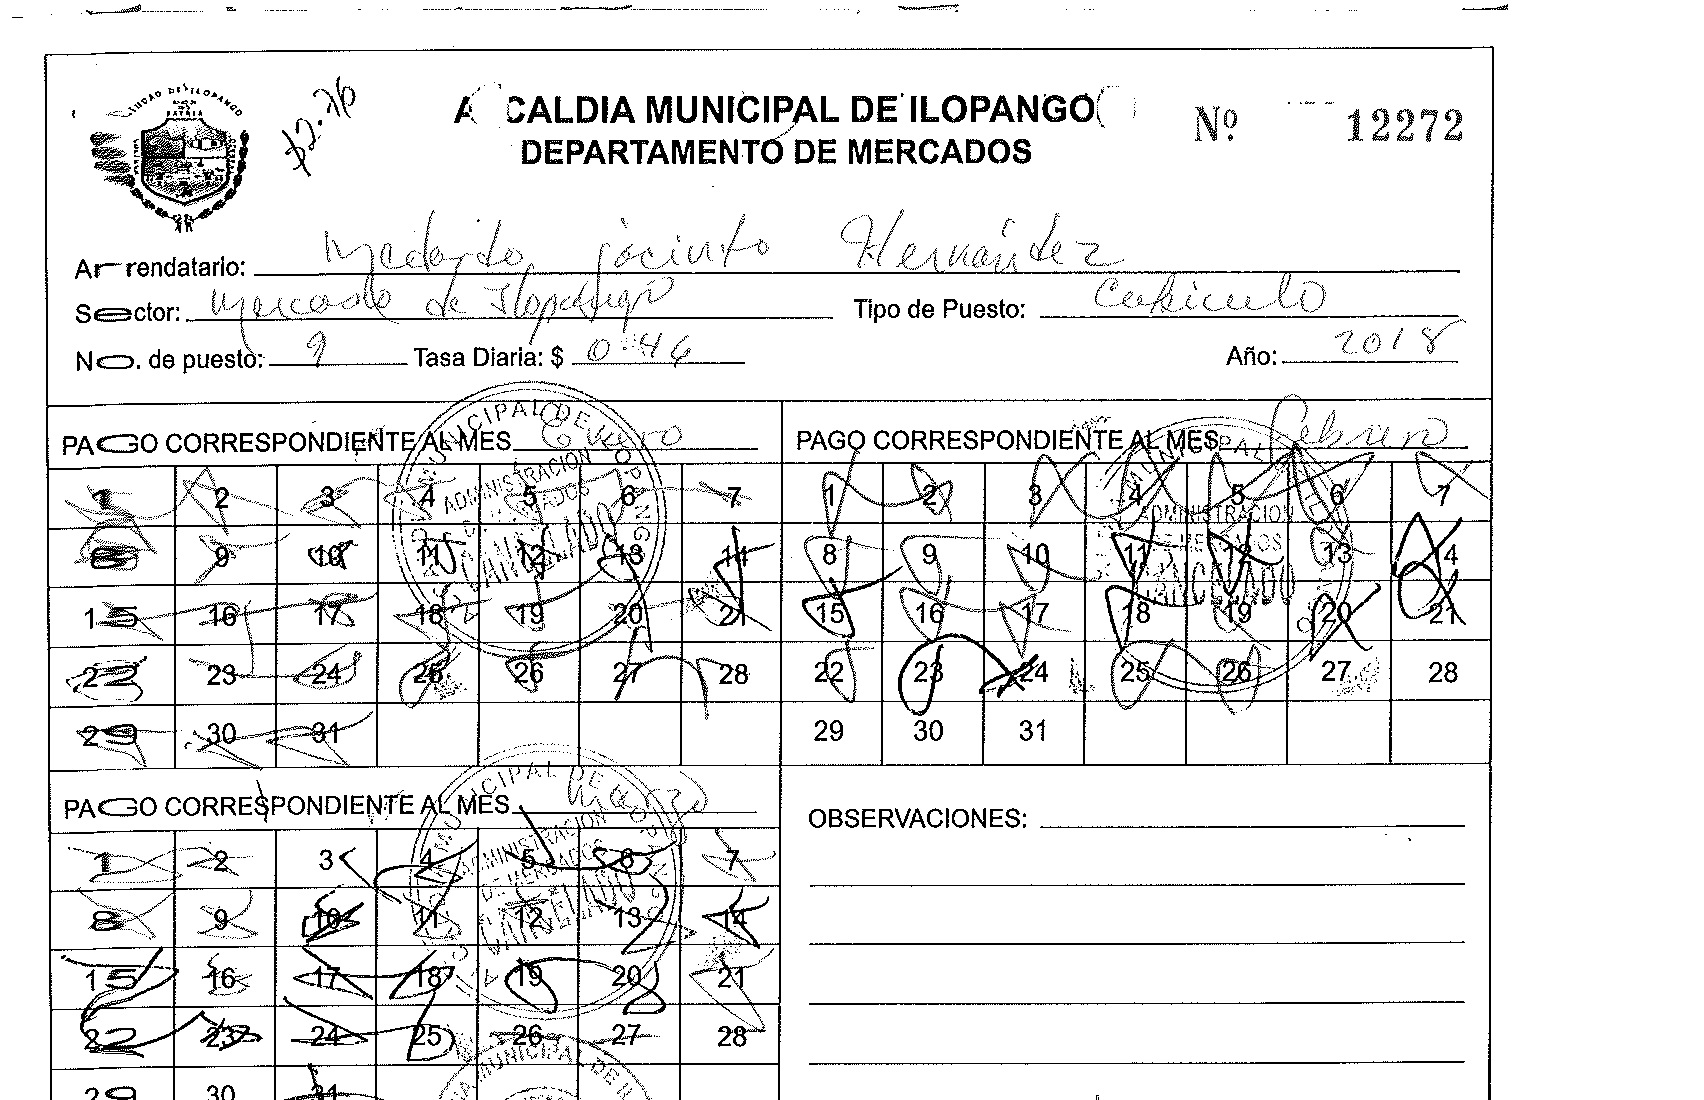 CIUDAD DE ILOPANGO
PATRIA
$2.76
ALCALDIA MUNICIPAL DE ILOPANGO
DEPARTAMENTO DE MERCADOS
Nº 12272
Arrendatario: Medardo jacinto Hernández
Sector: Mercado de Ilopango Tipo de Puesto: Cubiculo
No. de puesto: 9 Tasa Diaria: $ 0.46 Año: 2018
PAGO CORRESPONDIENTE AL MES Enero
1 2 3 4 5 6 7
8 9 10 11 12 13 14
15 16 17 18 19 20 21
22 23 24 25 26 27 28
29 30 31
MUNICIPAL DE ILOPANGO
ADMINISTRACION
DE MERCADOS
CANCELADO
PAGO CORRESPONDIENTE AL MES Febrero
1 2 3 4 5 6 7
8 9 10 11 12 13 14
15 16 17 18 19 20 21
22 23 24 25 26 27 28
29 30 31
MUNICIPAL
ADMINISTRACION
DE MERCADOS
CANCELADO
PAGO CORRESPONDIENTE AL MES Marzo
1 2 3 4 5 6 7
8 9 10 11 12 13 14
15 16 17 18 19 20 21
22 23 24 25 26 27 28
29 30 31
MUNICIPAL DE ILOPANGO
ADMINISTRACION
DE MERCADOS
CANCELADO
MUNICIPAL DE IL
OBSERVACIONES: